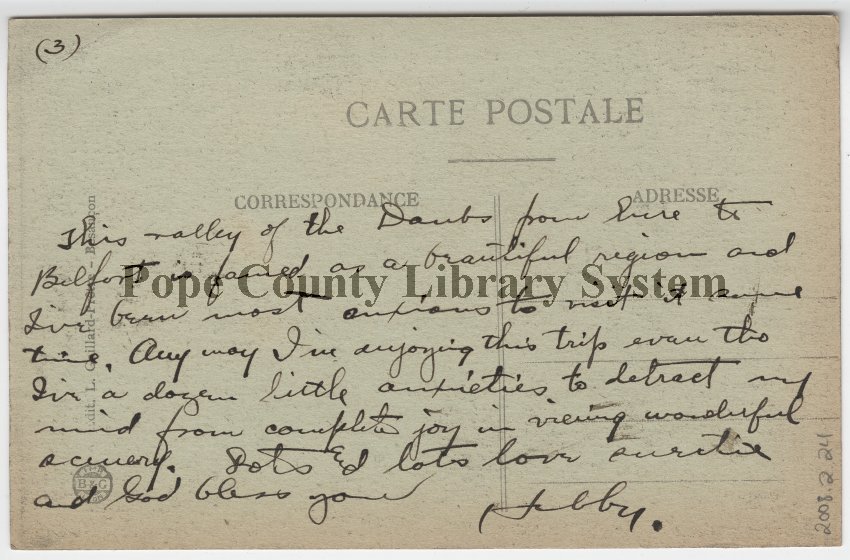 (3)
CARTE POSTALE
CORRESPONDANCE
ADRESSE
This valley of the Doubs from here to
Belfort is famed as a beautiful region and
I've been most anxious to visit it some
time. Any way I'm enjoying this trip even tho
I've a dozen little anxieties to detract my
mind from complete joy in viewing wonderful
scenery. Dots & lots love
and God bless you
Pope County Library System
Edit. L. Gaillard-Besançon
B&G
2008.2.24